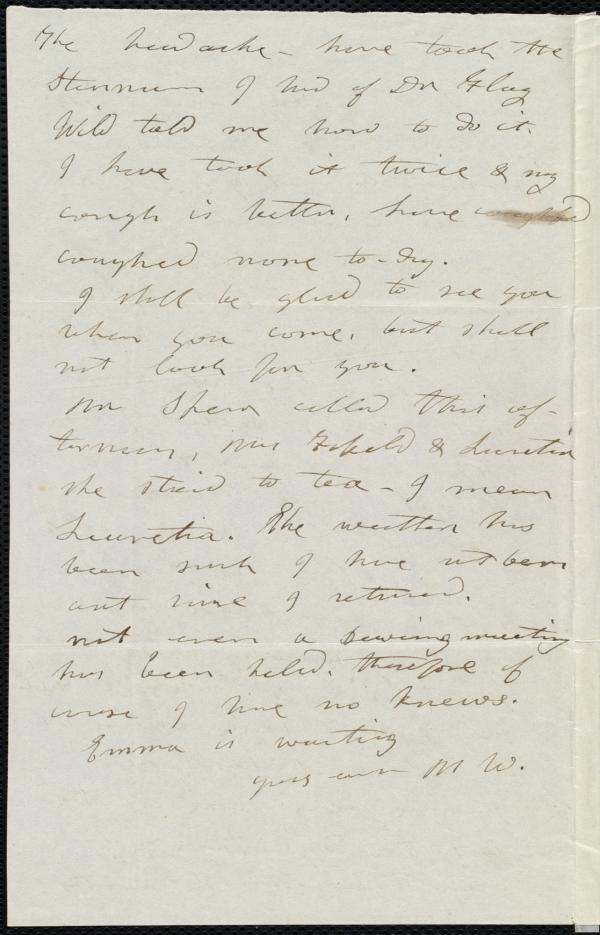 The headache - have took the
I had of Dr Flag
Wild told me how to do it.
I have took it twice & my
cough is better, have coughed
coughed none to-day.
I shall be glad to see you
when you come, but shall
not look for you.
Mr called this af-
ternoon, Mrs & Lucretia
she staid to tea - I mean
Lucretia. The weather has
been such I have not been
out since I returned.
not even a sewing meeting
has been held. therefore of
course I have no knews.
Emma is waiting
yours ever M W.